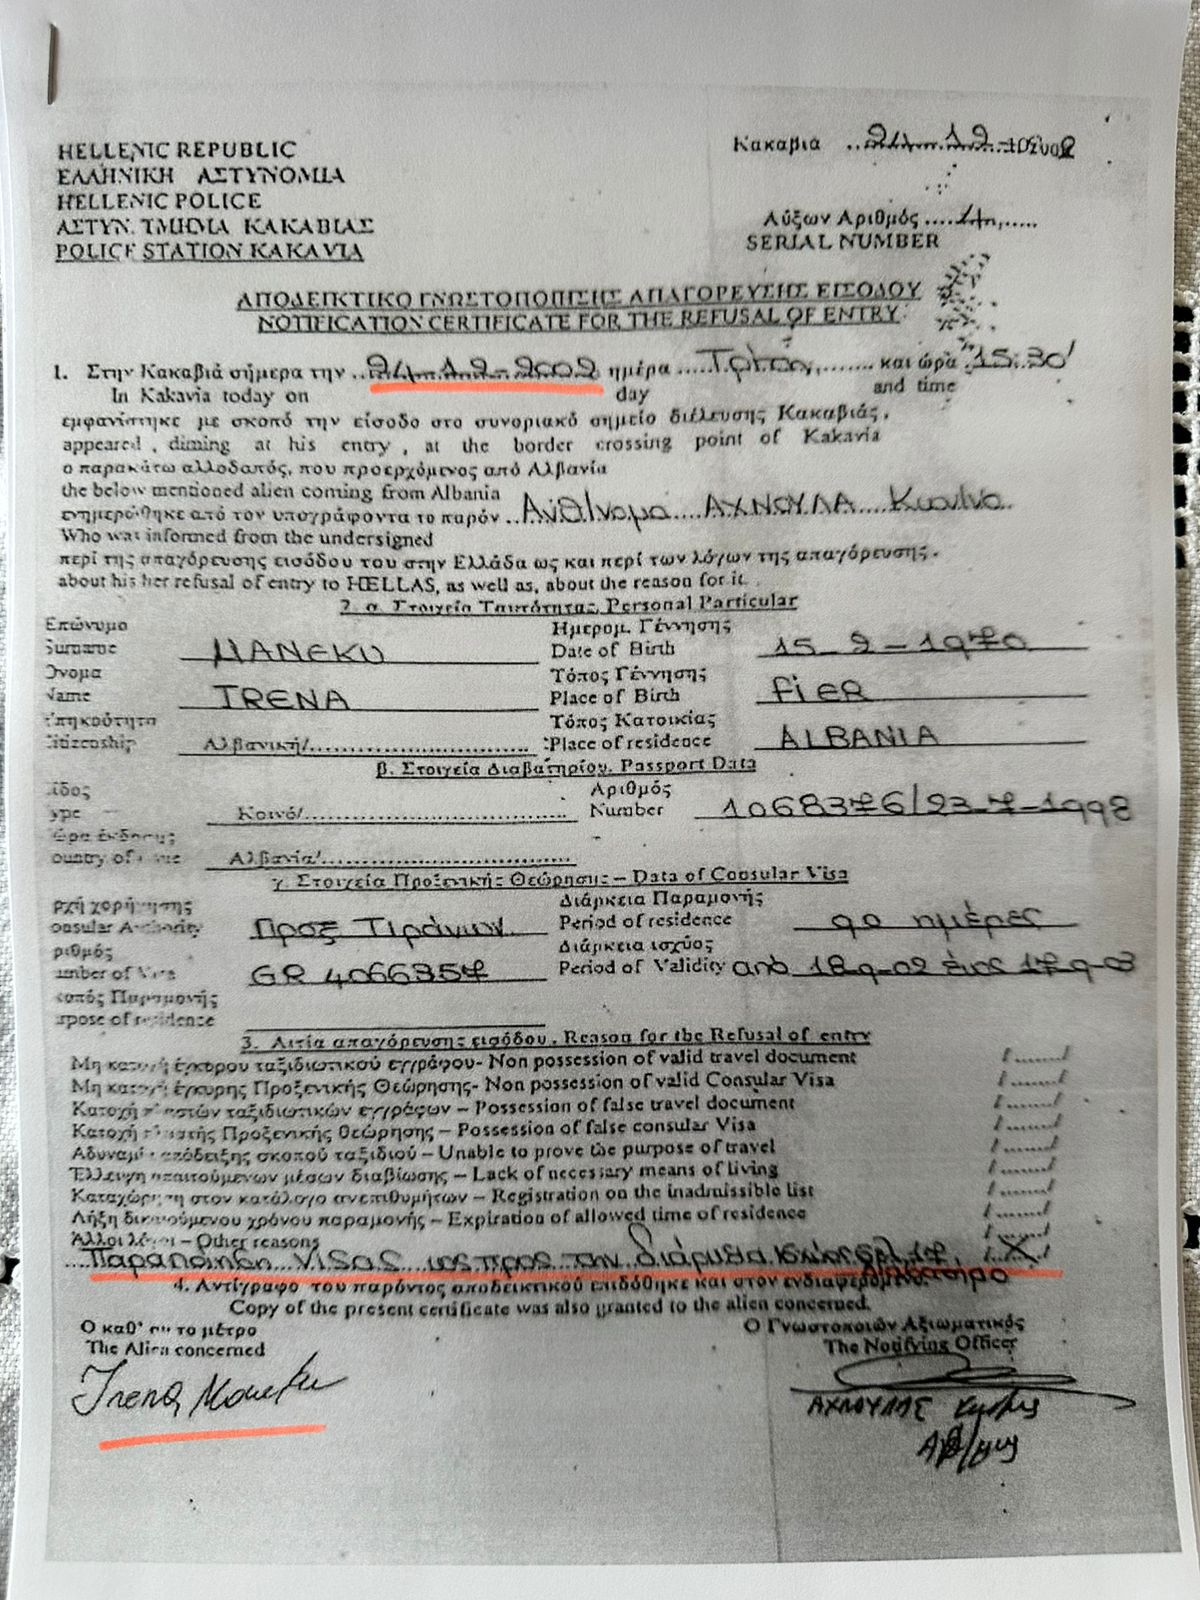 HELLENIC REPUBLIC
ΕΛΛΗΝΙΚΗ ΑΣΤΥΝΟΜΙΑ
HELLENIC POLICE
ΑΣΤΥΝ. ΤΜΗΜΑ ΚΑΚΑΒΙΑΣ
POLICE STATION KAKAVIA
Κακαβιά ..24-12-2002
Αύξων Αριθμός
SERIAL NUMBER
ΑΠΟΔΕΙΚΤΙΚΟ ΓΝΩΣΤΟΠΟΙΗΣΗΣ ΑΠΑΓΟΡΕΥΣΗΣ ΕΙΣΟΔΟΥ
NOTIFICATION CERTIFICATE FOR THE REFUSAL OF ENTRY
1. Στην Κακαβιά σήμερα την ..24-12-2002 ημέρα .....Τρίτη,....... και ώρα .15:30'
In Kakavia today on day and time
εμφανίστηκε με σκοπό την είσοδο στο συνοριακό σημείο διέλευσης Κακαβιάς ,
appeared , diming at his entry , at the border crossing point of Kakavia
ο παρακάτω αλλοδαπός, που προερχόμενος από Αλβανία
the below mentioned alien coming from Albania
ενημερώθηκε από τον υπογράφοντα το παρόν ..Ανθ/νομο....ΑΧΝΟΥΛΑ....Κων/νο..
Who was informed from the undersigned
περί της απαγόρευσης εισόδου του στην Ελλάδα ως και περί των λόγων της απαγόρευσης .
about his her refusal of entry to HELLAS, as well as, about the reason for it.
2. α. Στοιχεία Ταυτότητας, Personal Particular
Επώνυμο Ημερομ. Γέννησης
Surname MANEKU Date of Birth 15-2-1970
Όνομα Τόπος Γέννησης
Name IRENA Place of Birth FIER
Υπηκοότητα Τόπος Κατοικίας
Citizenship Αλβανική/.............................. :Place of residence ALBANIA
β. Στοιχεία Διαβατηρίου, Passport Data
ίδος Αριθμός
ype Κοινό/.................................... Number 1068376/23-7-1998
ώρα έκδοσης
ountry of Αλβανία/...................................
γ. Στοιχεία Προξενικής Θεώρησης – Data of Consular Visa
ρχή χορήγησης Διάρκεια Παραμονής
onsular Authority Προξ Τιράνων Period of residence 90 ημέρες
ριθμός Διάρκεια ισχύος
umber of Visa GR 4066357 Period of Validity από 18-9-02 έως 17-9-03
κοπός Παραμονής
rpose of residence
3. Αιτία απαγόρευσης εισόδου , Reason for the Refusal of entry
Μη κατοχή έγκυρου ταξιδιωτικού εγγράφου- Non possession of valid travel document /......./
Μη κατοχή έγκυρης Προξενικής Θεώρησης- Non possession of valid Consular Visa /......./
Κατοχή πλαστών ταξιδιωτικών εγγράφων – Possession of false travel document /......./
Κατοχή πλαστής Προξενικής θεώρησης – Possession of false consular Visa /......./
Αδυναμία απόδειξης σκοπού ταξιδιού – Unable to prove the purpose of travel /......./
Έλλειψη απαιτούμενων μέσων διαβίωσης – Lack of necessary means of living /......./
Καταχώρηση στον κατάλογο ανεπιθυμήτων – Registration on the inadmissible list /......./
Λήξη δικαιούμενου χρόνου παραμονής – Expiration of allowed time of residence /......./
Άλλοι λόγοι – Other reasons /......./
....Παραποίηση VISAS ως προς την διάρκεια ισχύος /..X../
4. Αντίγραφο του παρόντος αποδεικτικού επιδόθηκε και στον ενδιαφερόμενο.
Copy of the present certificate was also granted to the alien concerned.
Ο καθ' ου το μέτρο Ο Γνωστοποιών Αξιωματικός
The Alien concerned The Notifying Officer
Irena Maneku
ΑΧΝΟΥΛΑΣ Κων/νος